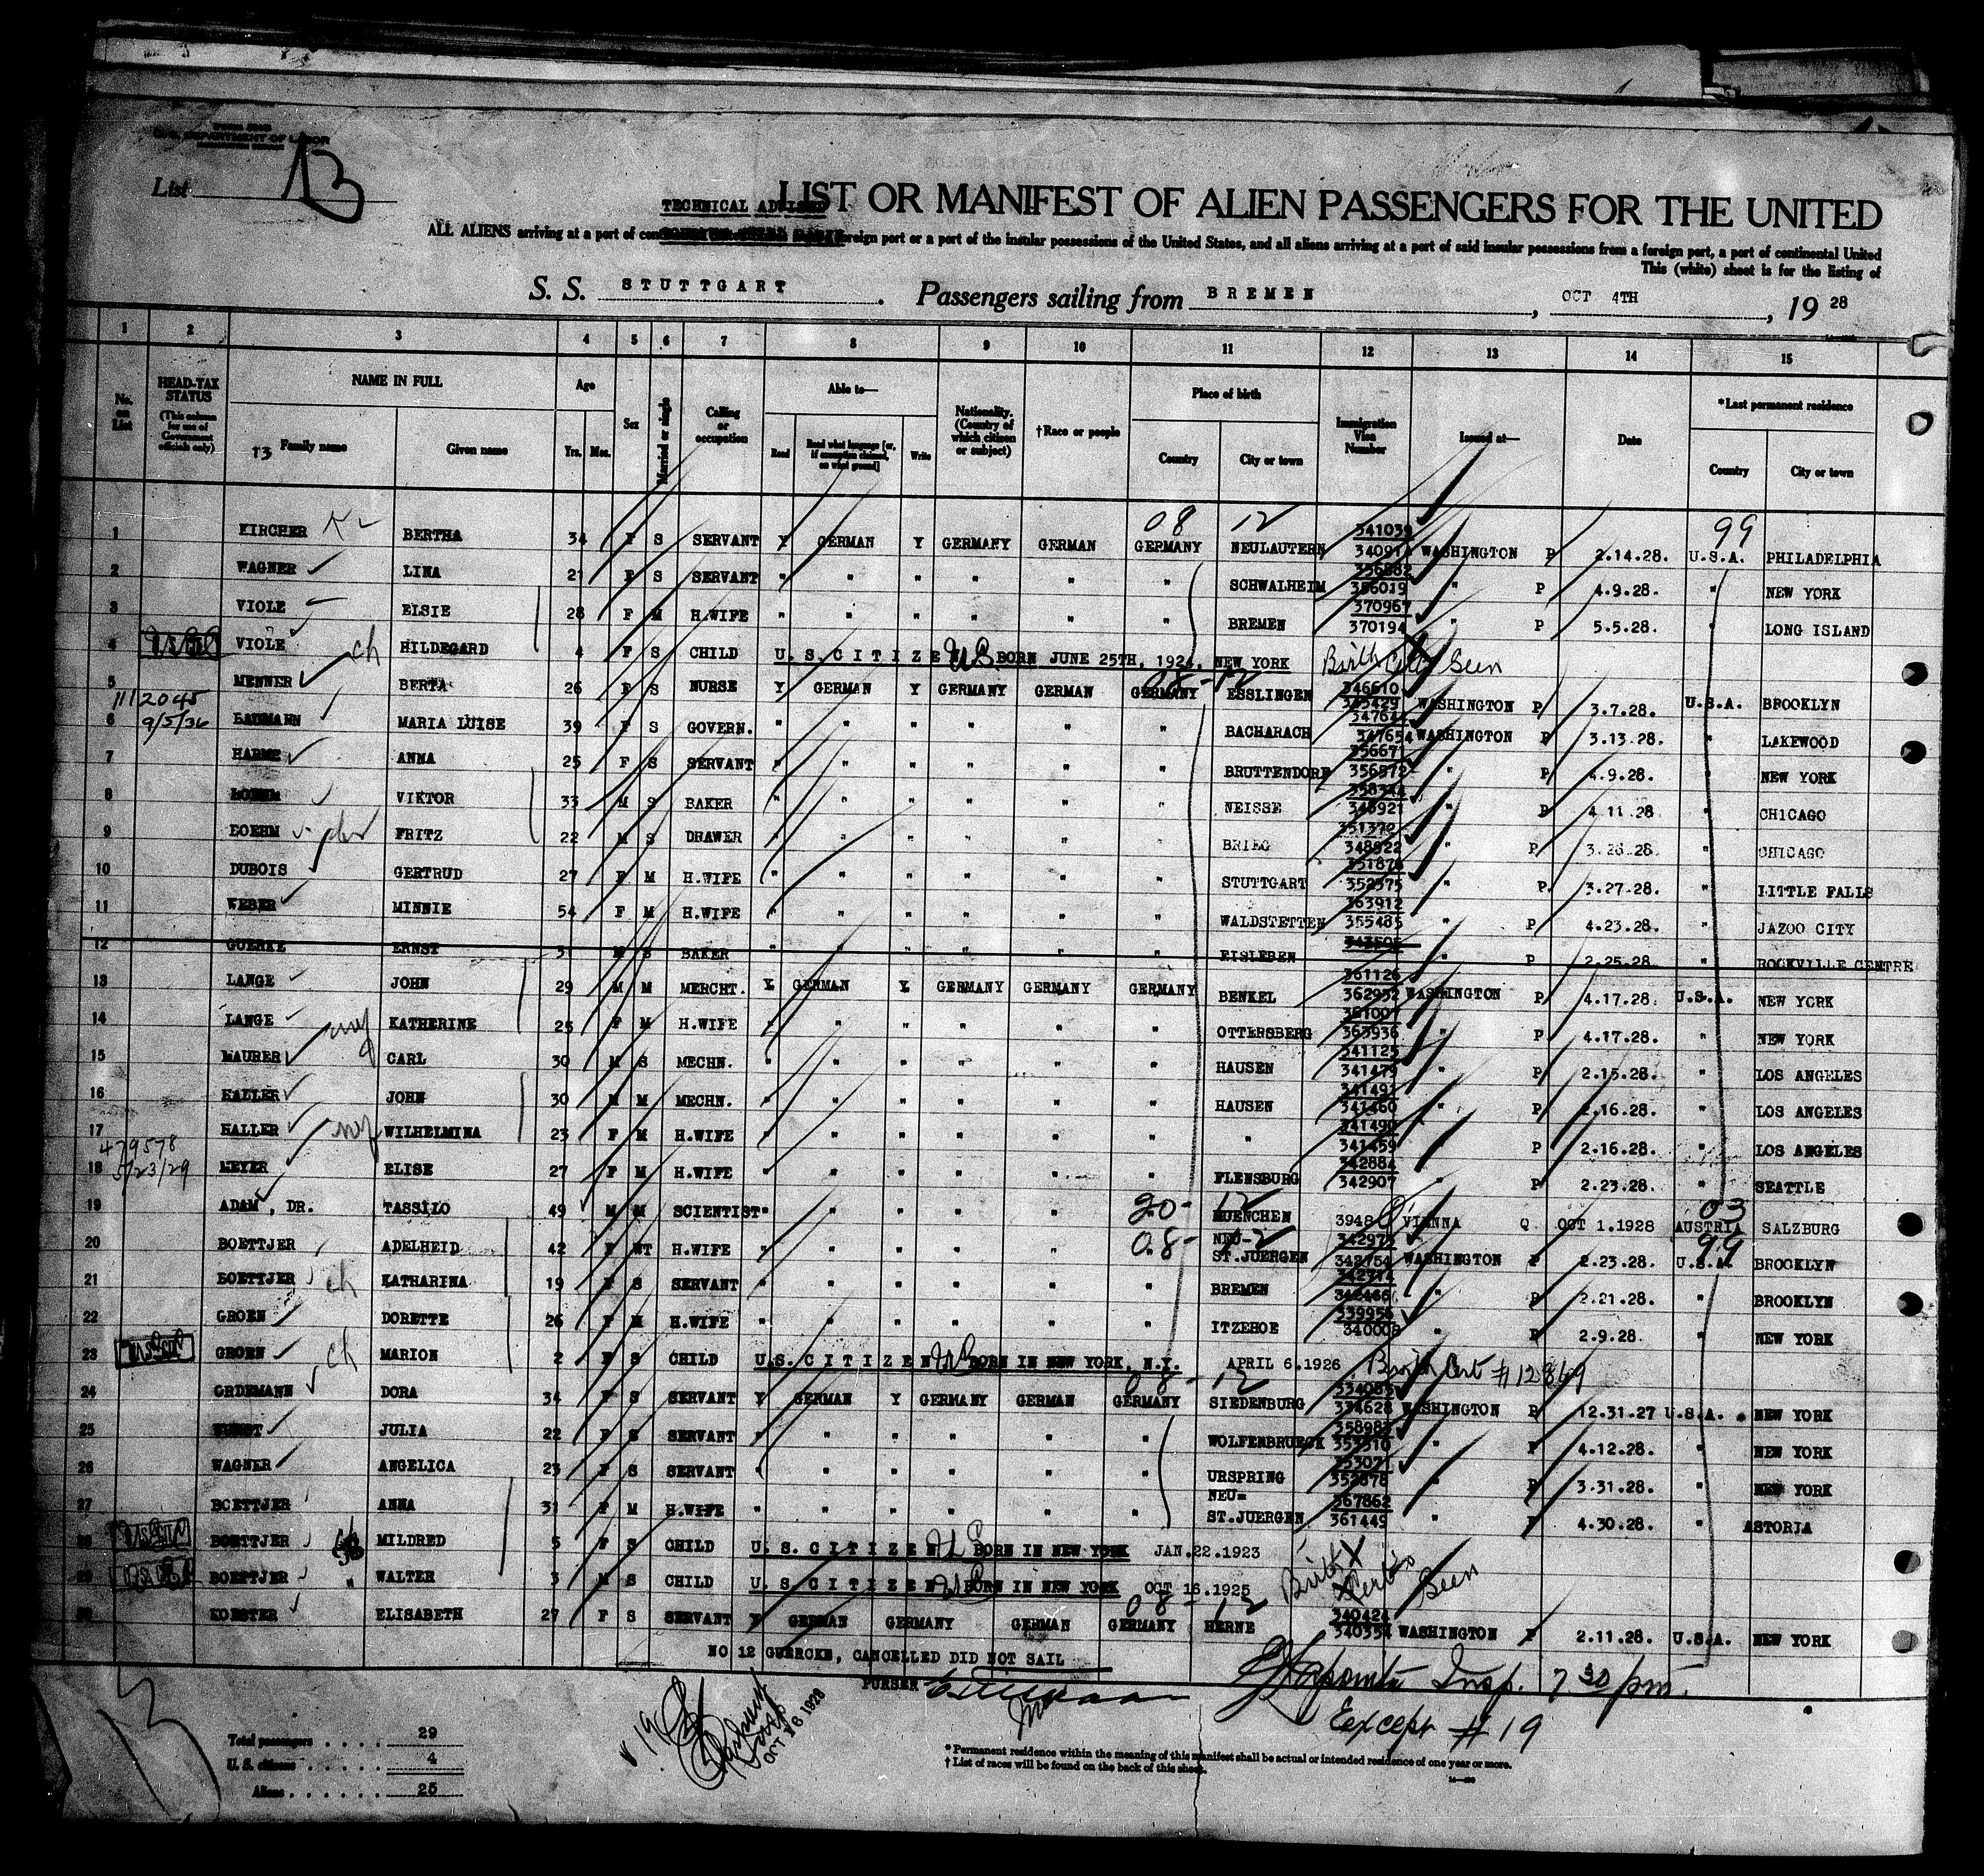 U.S. DEPARTMENT OF LABOR
List 13
TECHNICAL ADVISER
LIST OR MANIFEST OF ALIEN PASSENGERS FOR THE UNITED
ALL ALIENS arriving at a port of foreign port or a port of the insular possessions of the United States, and all aliens arriving at a port of said insular possessions from a foreign port, a port of continental United
This (white) sheet is for the listing of
S. S. STUTTGART . Passengers sailing from BREMEN , OCT 4TH , 19 28
1 2 3 4 5 6 7 8 9 10 11 12 13 14 15
No. on List HEAD-TAX STATUS (This column for use of Government officials only) NAME IN FULL Age Sex Married or single Calling or occupation Able to— Nationality. (Country of which citizen or subject) †Race or people Place of birth Immigration Visa Number Issued at— Date *Last permanent residence
13 Family name Given name Yrs. Mos. Read Read what language [or, if exemption claimed, on what ground] Write Country City or town Country City or town
08 12 99
1 KIRCHER BERTHA 34 F S SERVANT Y GERMAN Y GERMANY GERMAN GERMANY NEULAUTERN 341039 WASHINGTON P 2.14.28. U.S.A. PHILADELPHIA
2 WAGNER LINA 21 F S SERVANT " " " " " " SCHWALHEIM 356019 " P 4.9.28. " NEW YORK
3 VIOLE ELSIE 28 F M H.WIFE " " " " " " BREMEN 370967 370194 " P 5.5.28. " LONG ISLAND
4 VIOLE ch HILDEGARD 4 F S CHILD U.S.CITIZEN BORN JUNE 25TH, 1924, NEW YORK Birth Cert Seen
5 MENNER BERTA 26 F S NURSE Y GERMAN Y GERMANY GERMAN GERMANY ESSLINGEN 346610 WASHINGTON P 3.7.28. U.S.A. BROOKLYN
112045
6 9/5/36 BAUMANN MARIA LUISE 39 F S GOVERN. " " " " " " BACHARACH 347644 347654 WASHINGTON P 3.13.28. " LAKEWOOD
7 HARMS ANNA 25 F S SERVANT " " " " " " BRUTTENDORF 356671 356572 " P 4.9.28. " NEW YORK
8 BOEHM VIKTOR 33 M S BAKER " " " " " " NEISSE 348921 " P 4.11.28 " CHICAGO
9 BOEHM FRITZ 22 M S DRAWER " " " " " " BRIEG 348922 " P 3.26.28. " CHICAGO
10 DUBOIS GERTRUD 27 F M H.WIFE " " " " " " STUTTGART 351876 352375 " P 3.27.28. " LITTLE FALLS
11 WEBER MINNIE 54 F M H.WIFE " " " " " " WALDSTETTEN 363912 355485 " P 4.23.28. " JAZOO CITY
12 GUERKE ERNST M S BAKER " " " " " " EISLEBEN " P 2.25.28. " ROCKVILLE CENTRE
13 LANGE JOHN 29 M M MERCHT. Y GERMAN Y GERMANY GERMANY GERMANY BENKEL 361126 362952 WASHINGTON P 4.17.28. U.S.A. NEW YORK
14 LANGE KATHERINE 25 F M H.WIFE " " " " " " OTTERSBERG 363936 " P 4.17.28. " NEW YORK
15 MAURER CARL 30 M S MECHN. " " " " " " HAUSEN 341125 341479 " P 2.15.28. " LOS ANGELES
16 HALLER JOHN 30 M M MECHN. " " " " " " HAUSEN 341491 341460 " P 2.16.28. " LOS ANGELES
17 HALLER WILHELMINA 23 F M H.WIFE " " " " " " " 341490 341459 P 2.16.28. " LOS ANGELES
479578
18 5/23/29 MEYER ELISE 27 F M H.WIFE " " " " " " FLENSBURG 342884 342907 " P 2.23.28. " SEATTLE
20- 12 03
19 ADAM, DR. TASSILO 49 M M SCIENTIST " " " " " " MUENCHEN 3948 VIENNA Q OCT 1.1928 AUSTRIA SALZBURG
08- 12 99
20 BOETTJER ADELHEID 42 F WT H.WIFE " " " " " " NEU- ST.JUERGEN 342973 342754 WASHINGTON P 2.23.28. U.S.A. BROOKLYN
21 BOETTJER ch KATHARINA 19 F S SERVANT " " " " " " BREMEN 342974 342466 " P 2.21.28. " BROOKLYN
22 GROEN DORETTE 26 F M H.WIFE " " " " " " ITZEHOE 339956 340008 " P 2.9.28. " NEW YORK
23 GROEN ch MARION 2 F S CHILD U.S.CITIZEN BORN IN NEW YORK, N.Y. APRIL 6.1926 Birth Cert #12869
08- 12
24 ORDEMANN DORA 34 F S SERVANT Y GERMAN Y GERMANY GERMAN GERMANY SIEDENBURG 334628 WASHINGTON P 12.31.27 U.S.A. NEW YORK
25 JULIA 22 F S SERVANT " " " " " " WOLFENBRUECK 353510 " P 4.12.28. " NEW YORK
26 WAGNER ANGELICA 23 F S SERVANT " " " " " " URSPRING 353071 352878 " P 3.31.28. " NEW YORK
27 BOETTJER ANNA 31 F M H.WIFE " " " " " " NEU= ST.JUERGEN 367862 361449 " P 4.30.28. " ASTORIA
28 BOETTJER MILDRED 5 F S CHILD U.S.CITIZEN BORN IN NEW YORK JAN.22.1923
29 BOETTJER " WALTER 3 M S CHILD U.S.CITIZEN BORN IN NEW YORK OCT 16.1925 Birth Certs Seen
08- 12
30 KOESTER ELISABETH 27 F S SERVANT Y GERMAN GERMANY GERMAN GERMANY HERNE 340424 340354 WASHINGTON P 2.11.28. U.S.A. NEW YORK
NO 12 GUERCKE, CANCELLED DID NOT SAIL
PURSER
Insp. 7 30 pm.
Except #19
OCT 16 1928
Total passengers . . . . 29
U. S. citizens . . . . . 4
Aliens . . . . . . 25
* Permanent residence within the meaning of this manifest shall be actual or intended residence of one year or more.
† List of races will be found on the back of this sheet.